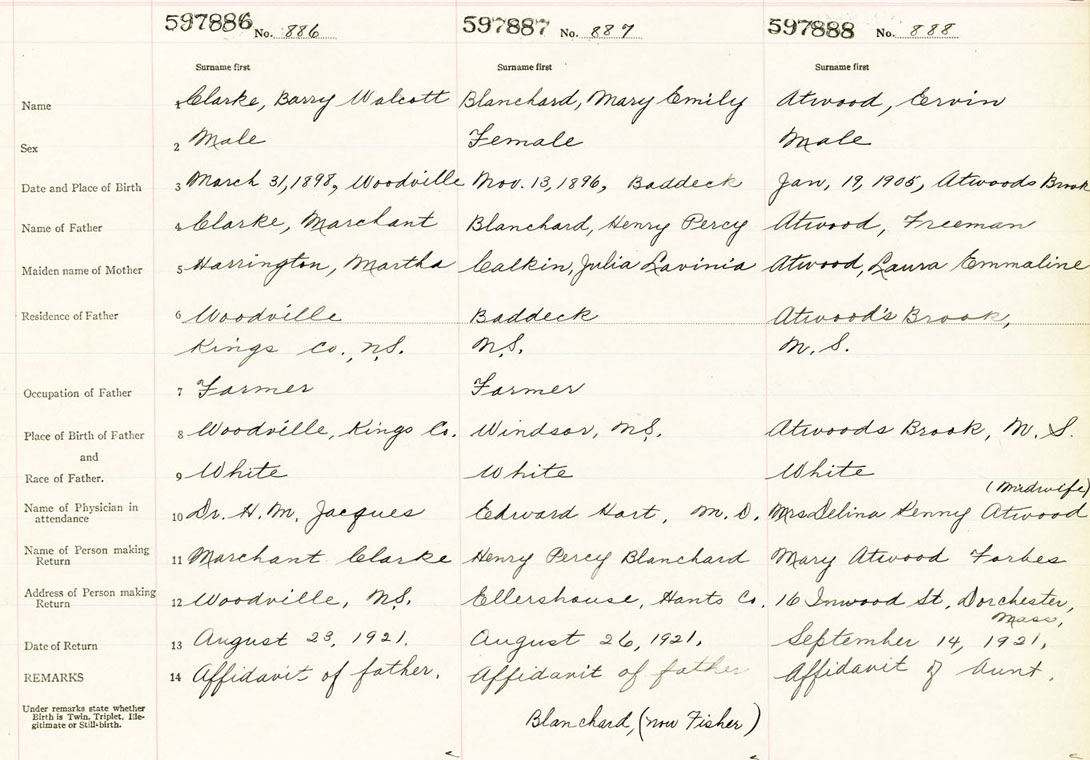 597886 No. 886 597887 No. 887 597888 No. 888
Surname first Surname first Surname first
Name 1 Clarke, Barry Walcott Blanchard, Mary Emily Atwood, Ervin
Sex 2 Male Female Male
Date and Place of Birth 3 March 31, 1898, Woodville Nov. 13, 1896, Baddeck Jan, 19, 1905, Atwoods Brook
Name of Father 4 Clarke, Marchant Blanchard, Henry Percy Atwood, Freeman
Maiden name of Mother 5 Harrington, Martha Calkin, Julia Lavinia Atwood, Laura Emmaline
Residence of Father 6 Woodville Baddeck Atwood's Brook,
Kings Co., N.S. N.S. N.S.
Occupation of Father 7 Farmer Farmer
Place of Birth of Father 8 Woodville, Kings Co. Windsor, N.S. Atwoods Brook, N.S.
and
Race of Father. 9 White White White
(Midwife)
Name of Physician in attendance 10 Dr. H. M. Jacques Edward Hart, M.D. Mrs Delina Kenny Atwood
Name of Person making Return 11 Marchant Clarke Henry Percy Blanchard Mary Atwood Forbes
Address of Person making Return 12 Woodville, N.S. Ellershouse, Hants Co. 16 Inwood St, Dorchester,
Mass,
Date of Return 13 August 23, 1921. August 26, 1921. September 14, 1921.
REMARKS 14 Affidavit of father. Affidavit of father Affidavit of Aunt.
Under remarks state whether
Birth is Twin, Triplet, Ille-
gitimate or Still-birth.
Blanchard, (now Fisher)